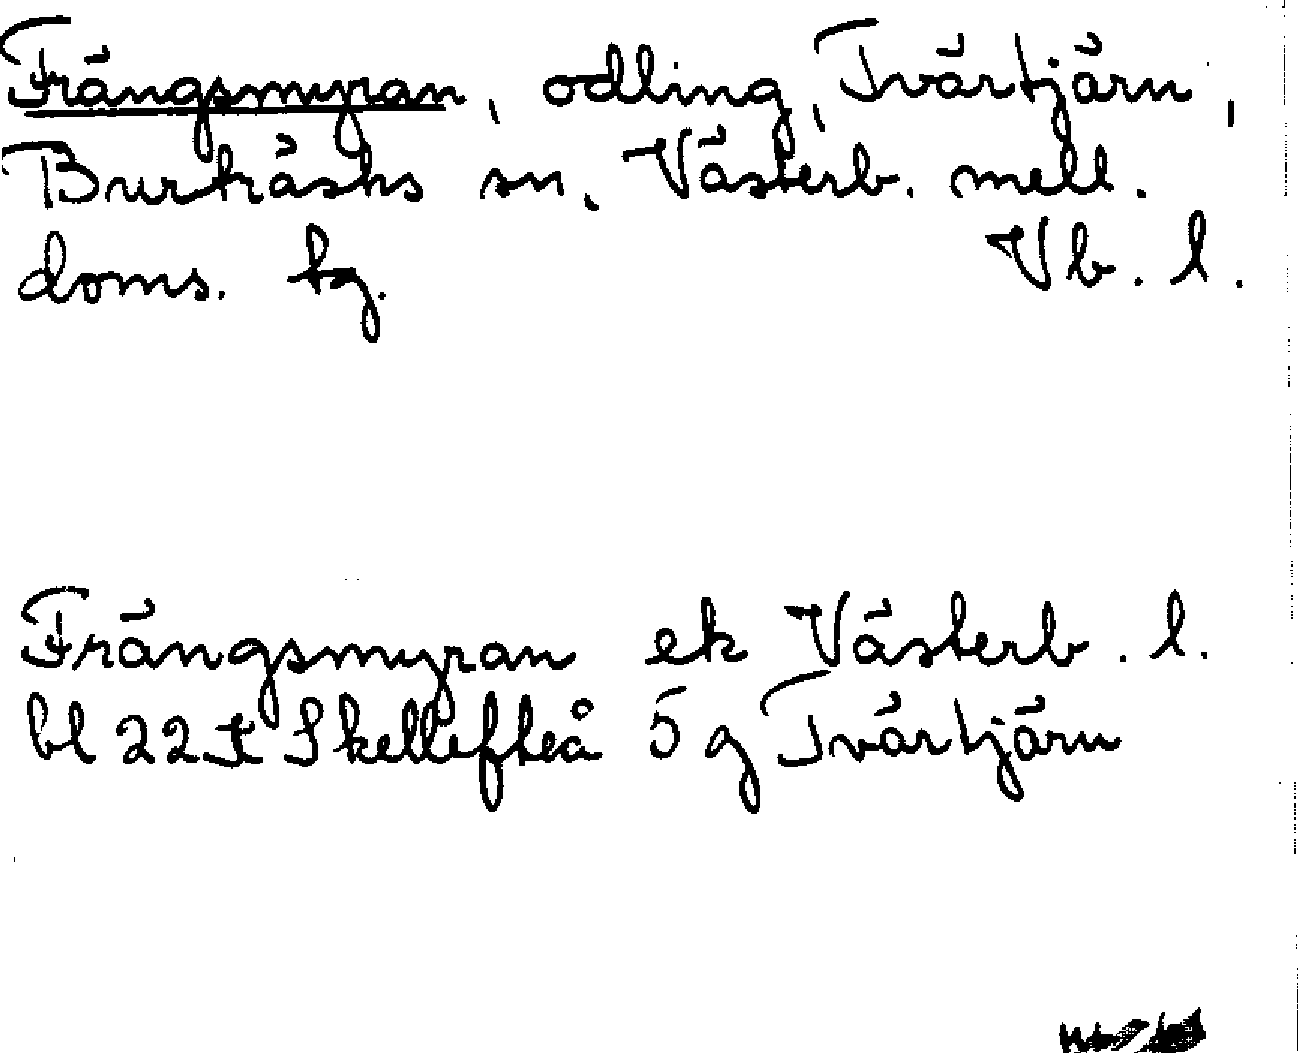 Frängsmyran, odling, Tvärtjärn,
Burträsks sn, Västerb. mell.
doms. hg. Vb. l.
Frängsmyran ek Västerb. l.
bl 22 K Skellefteå 5 g Tvärtjärn